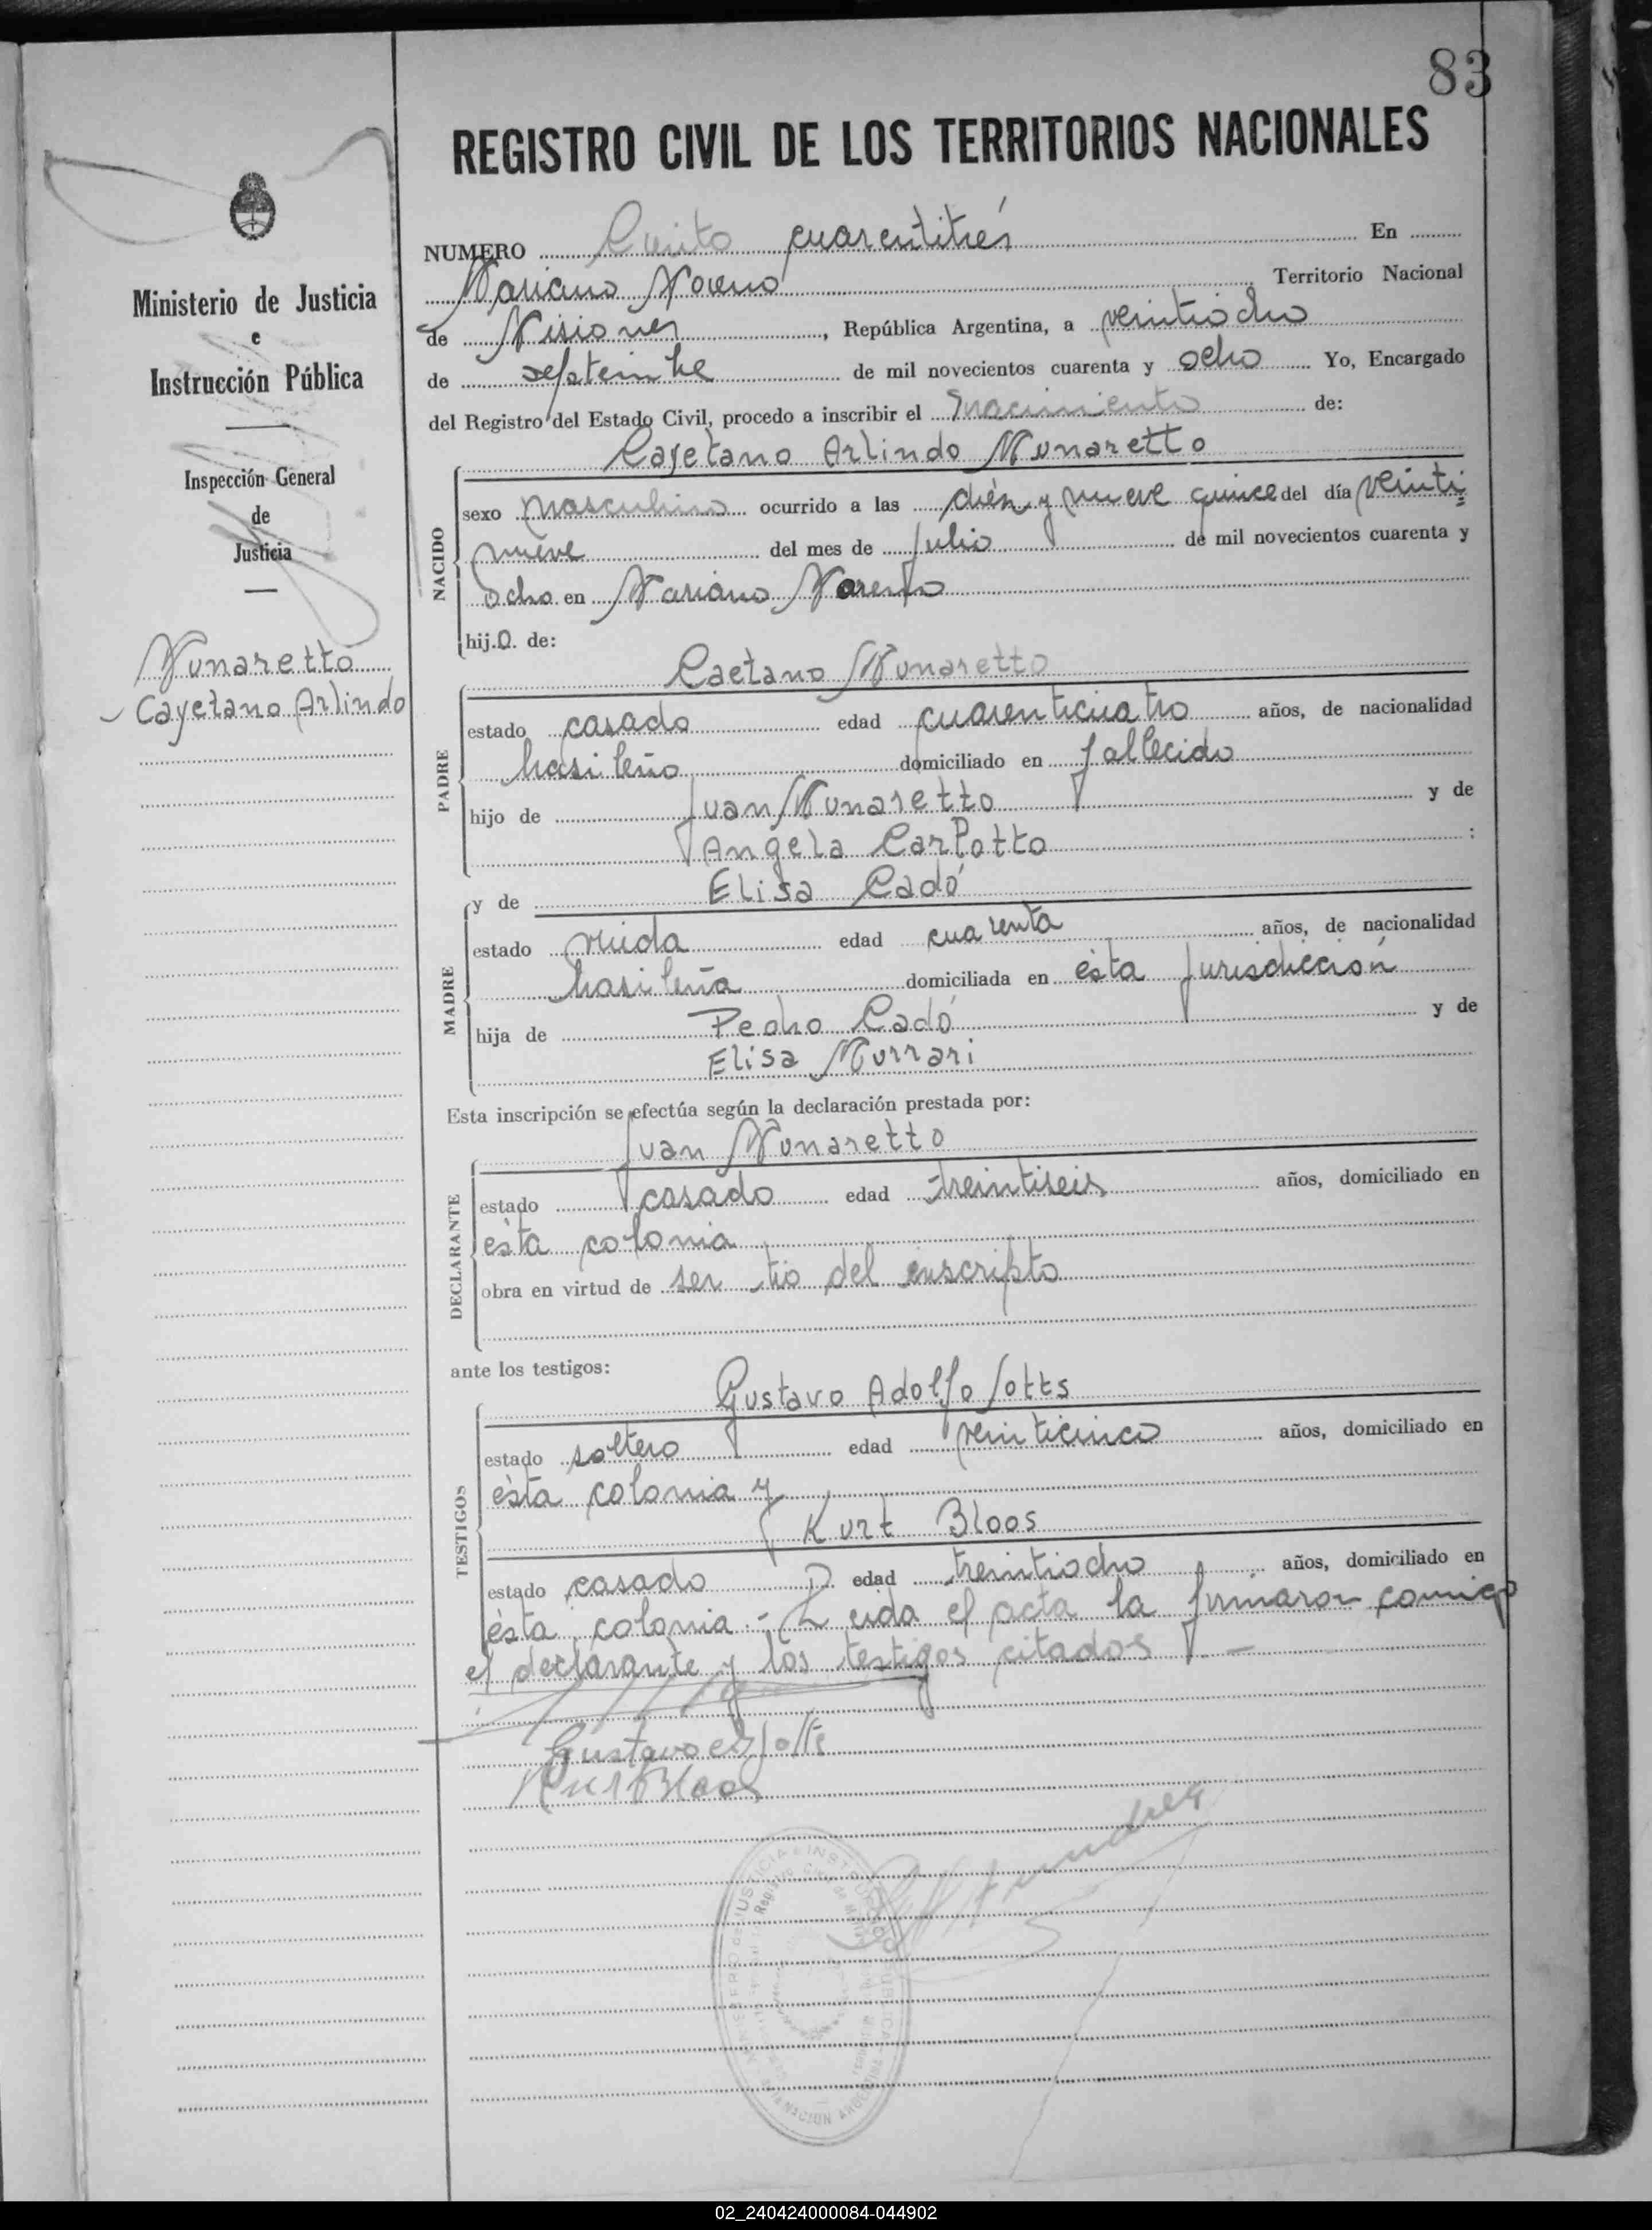 83
REGISTRO CIVIL DE LOS TERRITORIOS NACIONALES
Ministerio de Justicia
e
Instrucción Pública
Inspección General
de
Justicia
Munaretto
Cayetano Arlindo
NUMERO Ciento cuarentitrés En
Mariano Moreno Territorio Nacional
de Misiones, República Argentina, a veintiocho
de septiembre de mil novecientos cuarenta y ocho Yo, Encargado
del Registro del Estado Civil, procedo a inscribir el nacimiento de:
Cayetano Arlindo Munaretto
NACIDO
sexo masculino ocurrido a las diez y nueve quince del día veinti=
nueve del mes de julio de mil novecientos cuarenta y
ocho en Mariano Moreno
hijo de:
Caetano Munaretto
PADRE
estado casado edad cuarenticuatro años, de nacionalidad
brasileño domiciliado en fallecido
hijo de Juan Munaretto y de
Angela Carlotto :
y de Elisa Cadó
MADRE
estado viuda edad cuarenta años, de nacionalidad
brasileña domiciliada en ésta jurisdicción
hija de Pedro Cadó y de
Elisa Murrari
Esta inscripción se efectúa según la declaración prestada por:
Juan Munaretto
DECLARANTE
estado casado edad treintiseis años, domiciliado en
ésta colonia
obra en virtud de ser tio del inscripto
ante los testigos:
Gustavo Adolfo Jotts
TESTIGOS
estado soltero edad veinticinco años, domiciliado en
ésta colonia y
Kurt Bloos
estado casado edad treintiocho años, domiciliado en
ésta colonia.- Leida el acta la firmaron comigo
el declarante y los testigos citados.-
Kurt Bloos
02_240424000084-044902